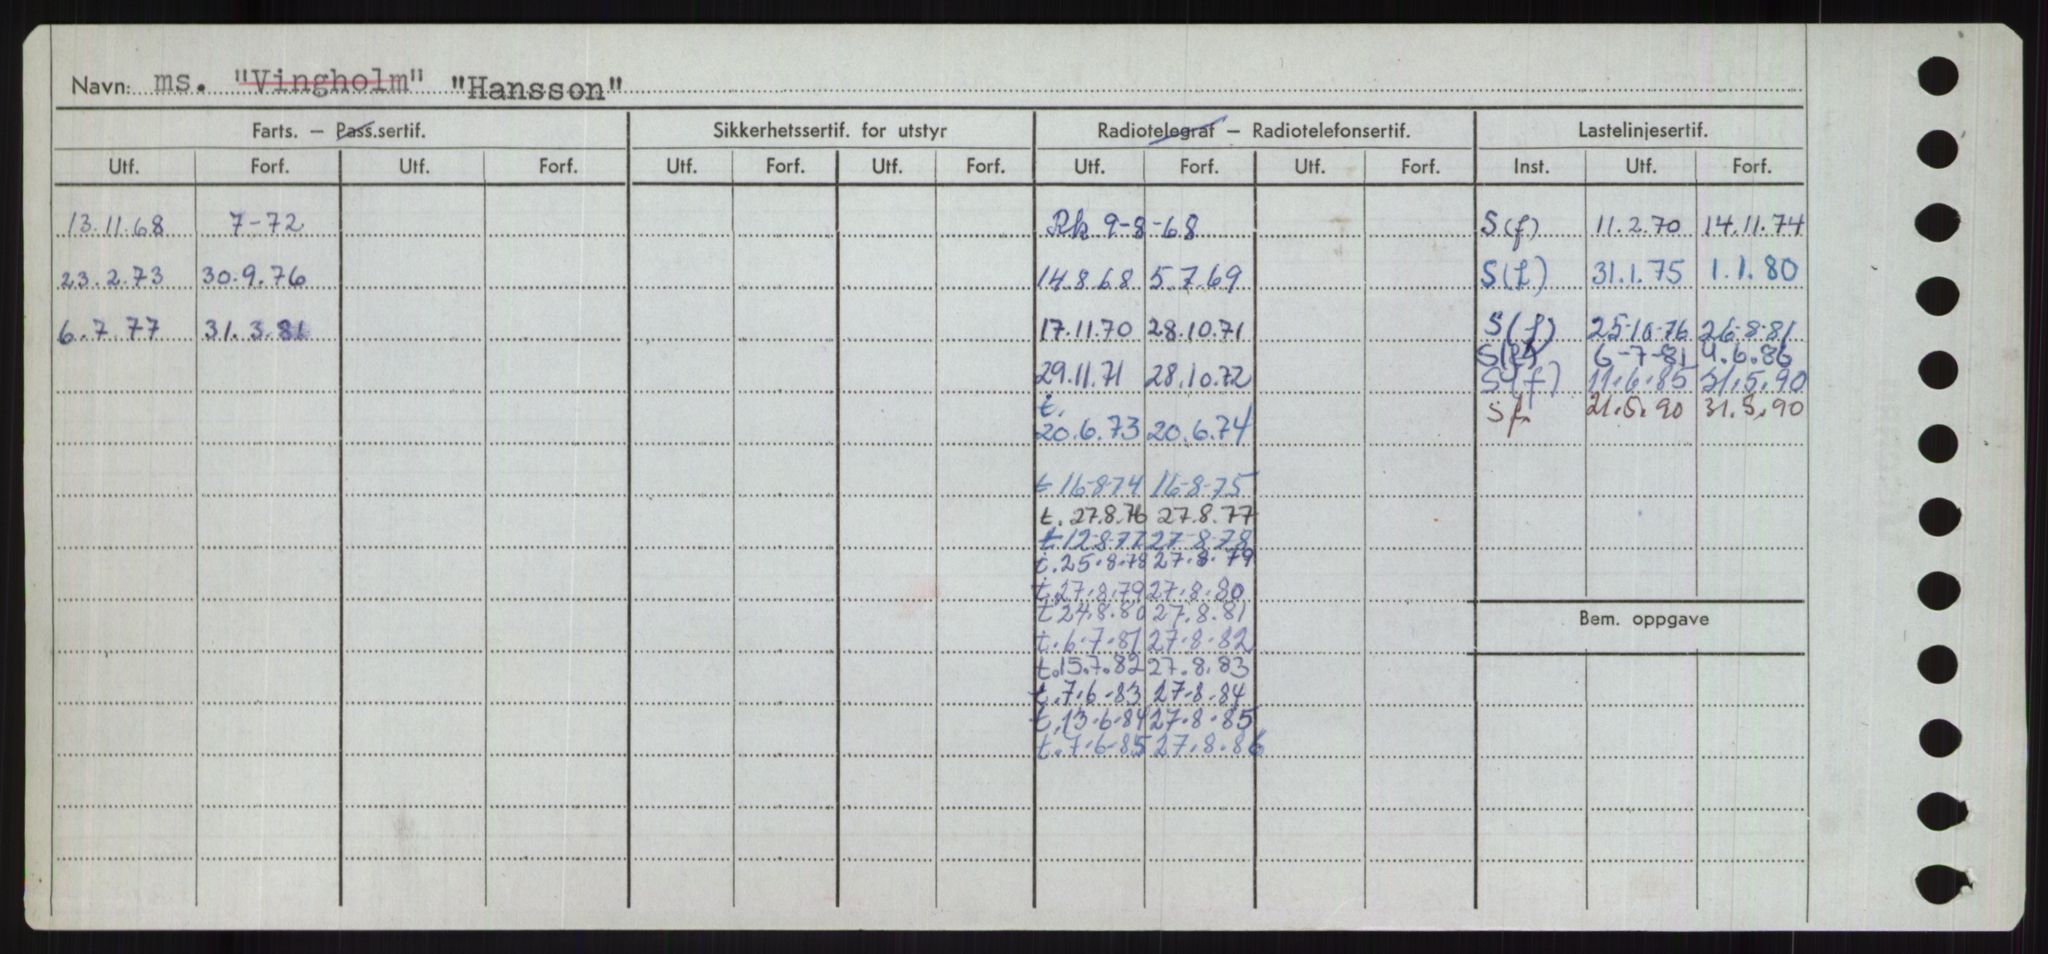 Navn: ms. "Vingholm" "Hansson"
Farts. – Pass.sertif. Sikkerhetssertif. for utstyr Radiotelegraf – Radiotelefonsertif. Lastelinjesertif.
Utf. Forf. Utf. Forf. Utf. Forf. Utf. Forf. Utf. Forf. Utf. Forf. Inst. Utf. Forf.
13.11.68 7-72 Rk 9-8-68 S(f) 11.2.70 14.11.74
23.2.73 30.9.76 14.8.68 5.7.69 S(f) 31.1.75 1.1.80
6.7.77 31.3.81 17.11.70 28.10.71 S(f) 25-10-76 26-8-81
S(f) 6-7-81 4.6.86
29.11.71 28.10.72 S(f) 11.6.85 31.5.90
t. Sf. 21.5.90 31.5.90
20.6.73 20.6.74
t 16-8-74 16-8-75
t. 27.8.76 27.8.77
t 12-8-77 27-8-78
t. 25.8.78 27.8.79
t. 27.8.79 27.8.80
t 24.8.80 27.8.81
Bem. oppgave
t. 6.7.81 27.8.82
t. 15.7.82 27.8.83
t. 7.6.83 27.8.84
t. 13.6.84 27.8.85
t. 7.6-85 27.8.86